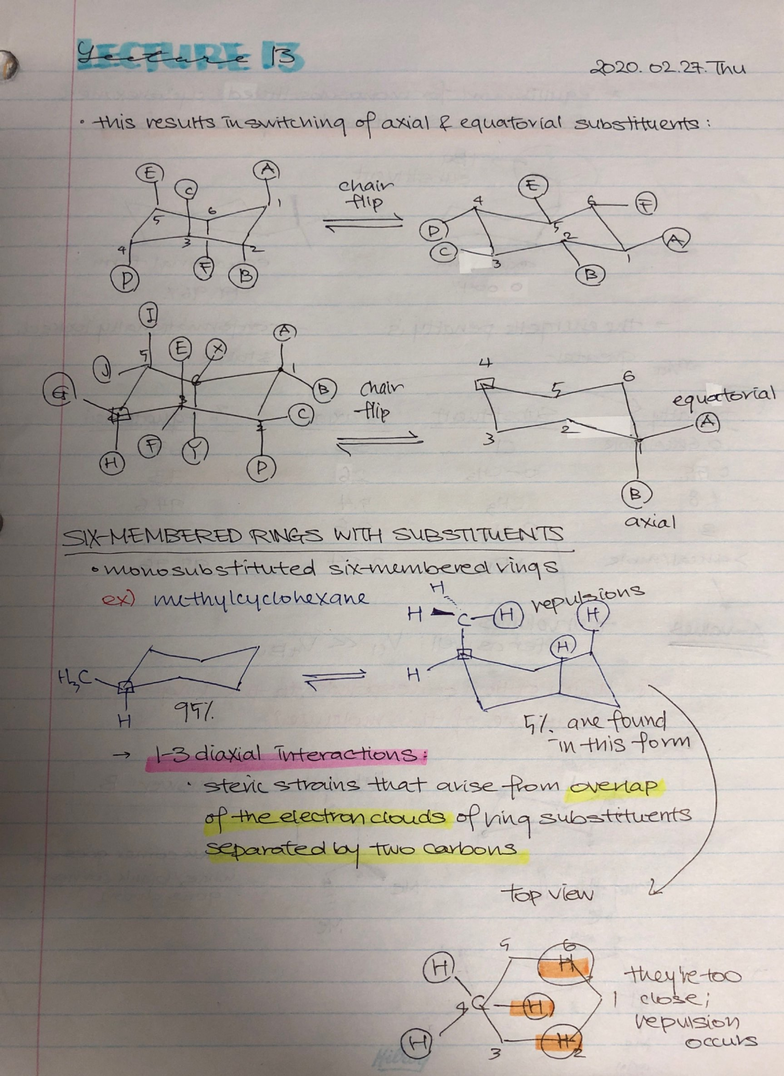 LECTURE 13
Lecture
2020. 02. 27. Thu
• this results in switching of axial & equatorial substituents :
E C A
5 6 1
4 3 2
D F B
chair
flip
4 E 6 F
D 5
C 2 A
3 1
B
I
5 E X A
J 1
G B
3 2 C
H F Y D
chair
flip
4 6
5
3 2 1
equatorial
A
B
axial
SIX-MEMBERED RINGS WITH SUBSTITUENTS
• monosubstituted six-membered rings
ex) methylcyclohexane
H₃C
H
95%
H repulsions
H C H H
H
H
5% are found
in this form
→ 1-3 diaxial interactions:
• steric strains that arise from overlap
of the electron clouds of ring substituents
separated by two carbons
top view
5 6
H H
4 C H 1
H H
3 2
they're too
close;
repulsion
occurs